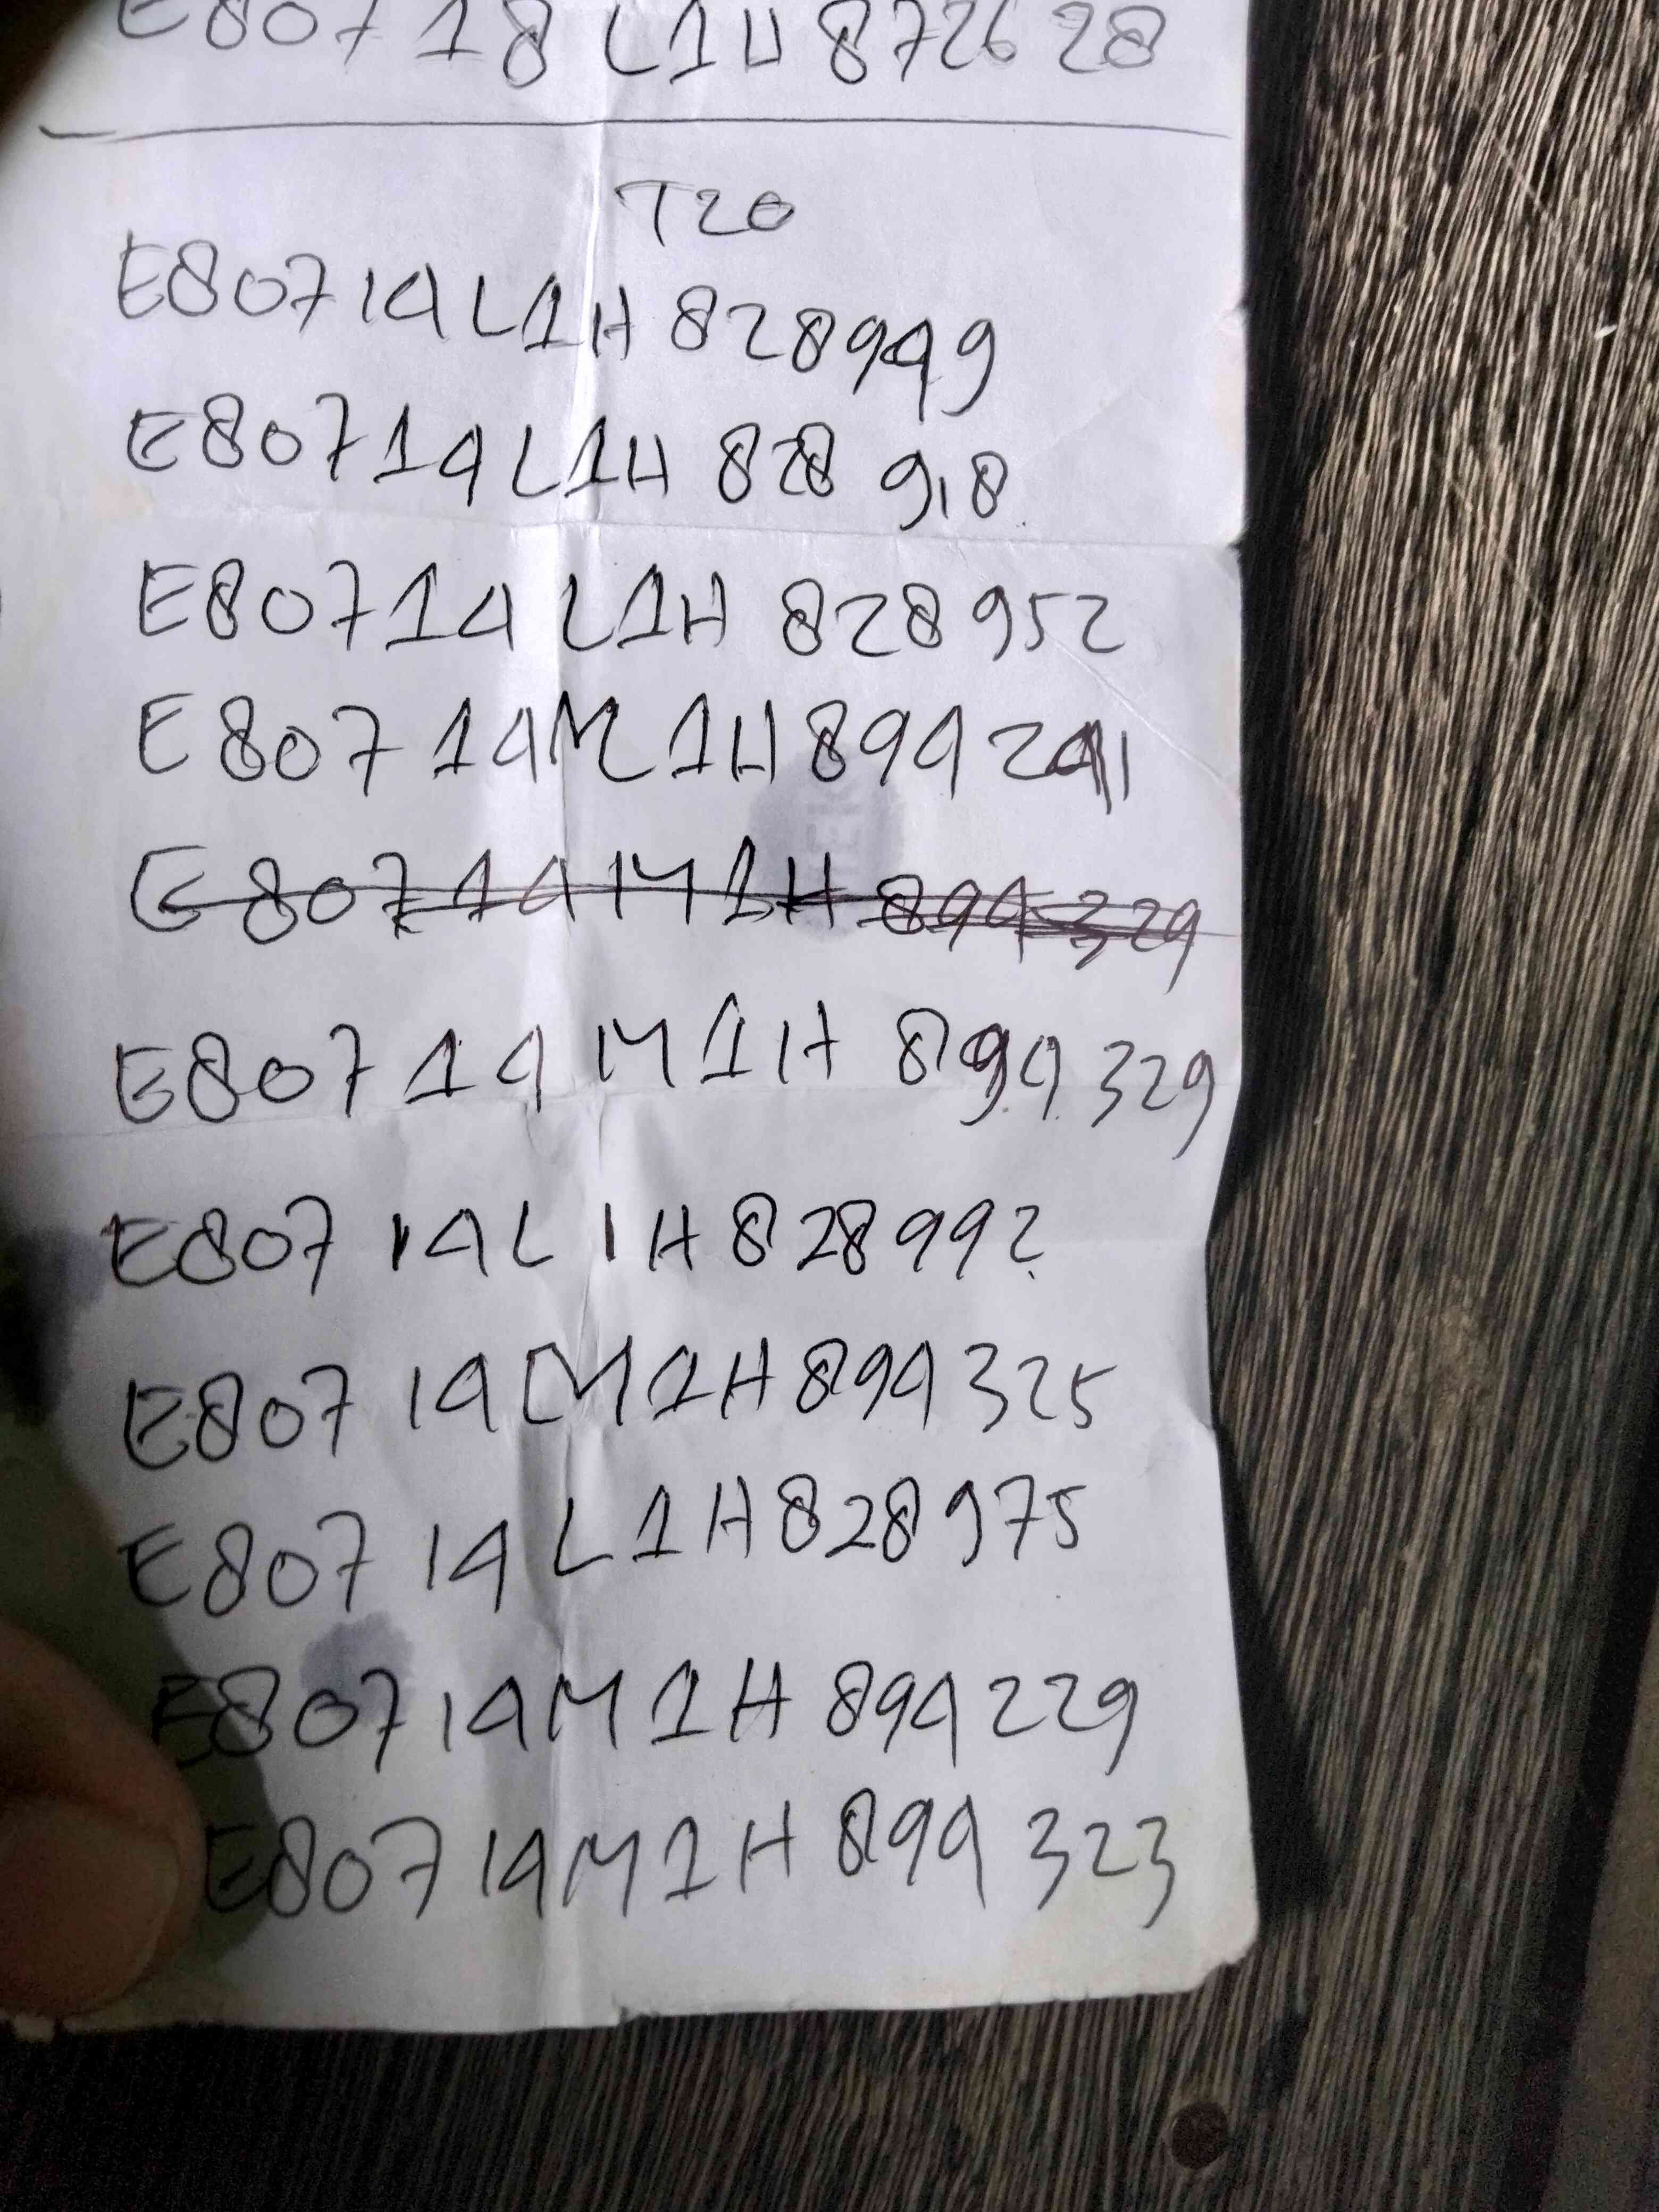 E80718L1H872628
T20
E80714L1H828949
E80714L1H828918
E80714L1H828952
E80714M1H894241
E80714M1H894329
E80714M1H894329
E80714L1H828992
E80714M1H894325
E80714L1H828975
E80714M1H894229
E80714M1H894323